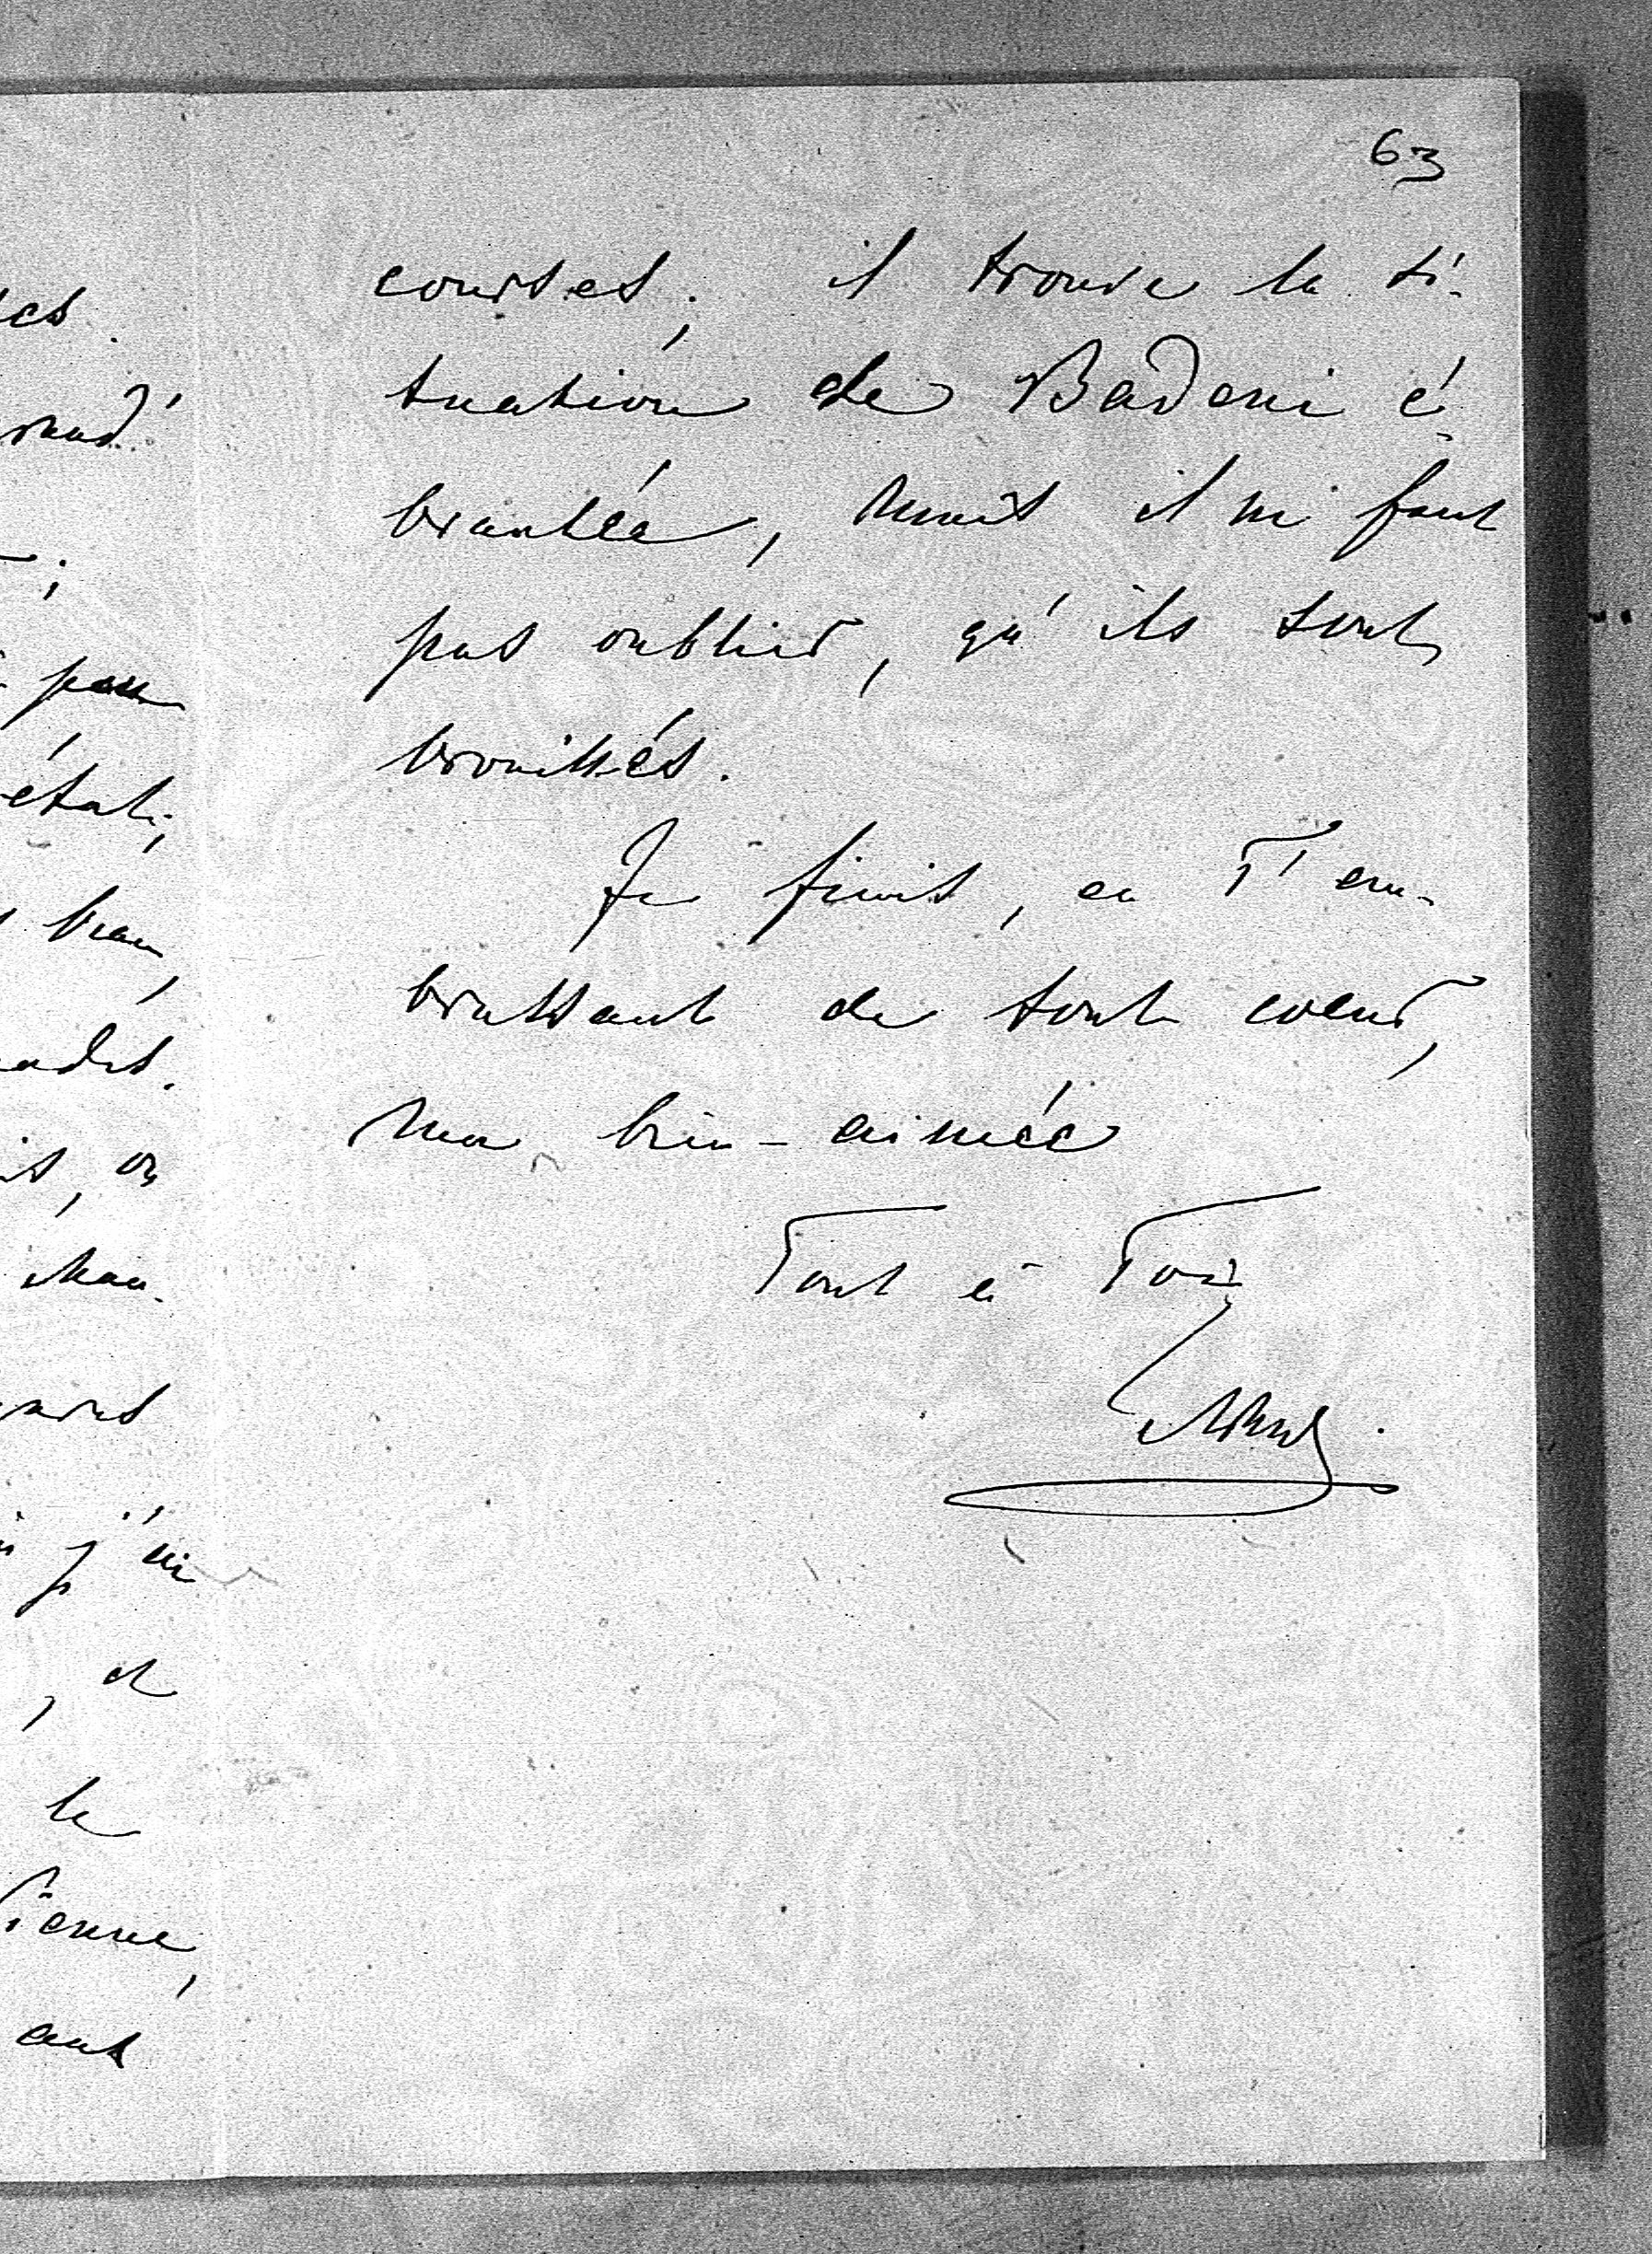 63
courses; il trouve la si-
tuation de Badeni é-
branlée, mais il ne faut
pas oublier, qu'ils sont
brouillés.
Je finis, en T'em-
brassant de tout coeur,
ma bien-aimée
Tout à Toi
pour
étali;
beau,
is, on
j'ai
, et
le
Vienne,
aux